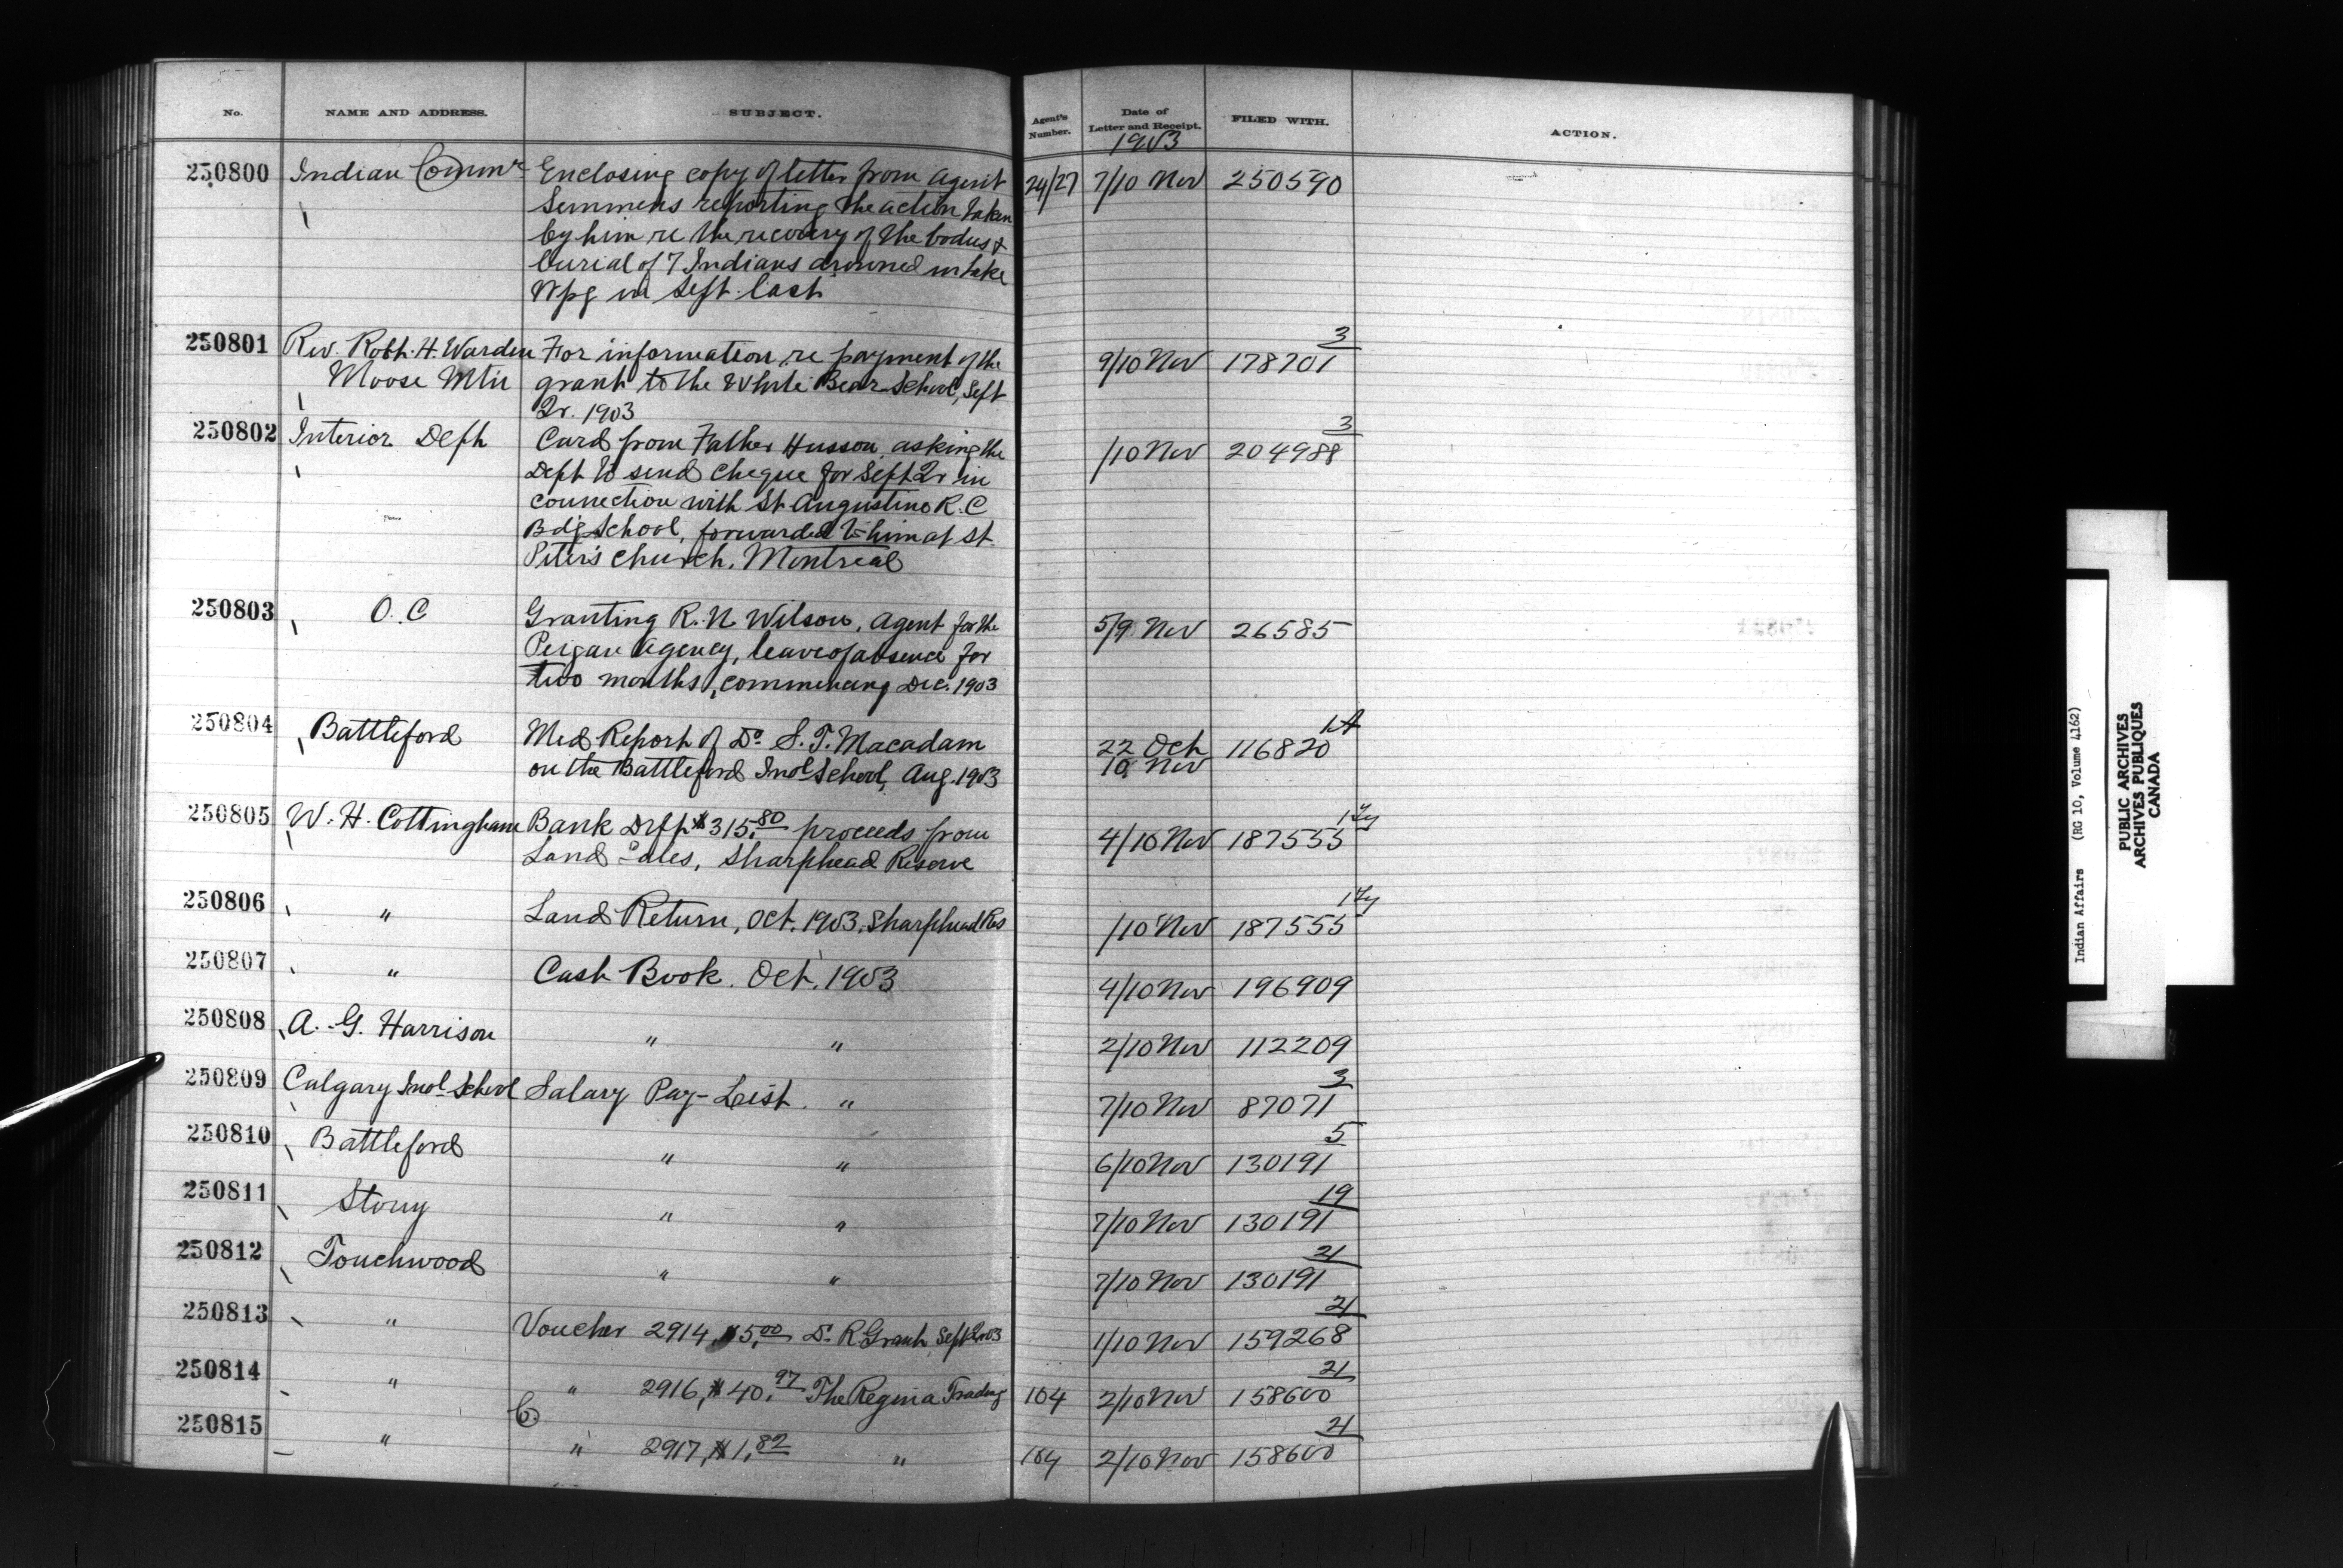 No. NAME AND ADDRESS. SUBJECT. Agent's Number. Date of Letter and Receipt. FILED WITH. ACTION.
1903
250800 Indian Commr Enclosing copy of letter from Agent 24/27 7/10 Nov 250590
Semmens reporting the action taken
by him re the recovery of the bodies &
burial of 7 Indians drowned in Lake
Wpg in Sept. last
250801 Rev. Robt. H. Warden For information re payment of the 9/10 Nov 178701 3
Moose Mtn grant to the White Bear School, Sept
Qr. 1903
250802 Interior Dept Card from Father Husson asking the /10 Nov 204988 3
Dept to send cheque for Sept Qr in
connection with St Augustine R.C
Bdg School, forwarded to him at St
Peter's Church, Montreal
250803 O.C Granting R. N. Wilson, Agent for the 5/9 Nov 26585
Peigan Agency, leave of absence for
two months, commencing Dec. 1903
250804 Battleford Med Report of Dr S. T. Macadam 22 Oct 116820 1A
on the Battleford Indl School, Aug. 1903 10 Nov
250805 W. H. Cottingham Bank Dept $315.80 proceeds from 4/10 Nov 187555
Land Sales, Sharphead Reserve
250806 " Land Return, Oct. 1903. Sharphead Res /10 Nov 187555
250807 " Cash Book. Oct. 1903 4/10 Nov 196909
250808 A. G. Harrison " " 2/10 Nov 112209
250809 Calgary Indl School Salary Pay-List. " 7/10 Nov 87071 3
250810 Battleford " " 6/10 Nov 130191 5
250811 Stony " " 7/10 Nov 130191 19
250812 Touchwood " " 7/10 Nov 130191 21
250813 " Voucher 2914, $5.00 Dr. R Grant Sept Qr 03 1/10 Nov 159268 21
250814 " " 2916, $40.97 The Regina Trading 104 2/10 Nov 158600 21
Co.
250815 " " 2917, $1.82 " 104 2/10 Nov 158600 21
Indian Affairs (RG 10, Volume 4162)
PUBLIC ARCHIVES
ARCHIVES PUBLIQUES
CANADA